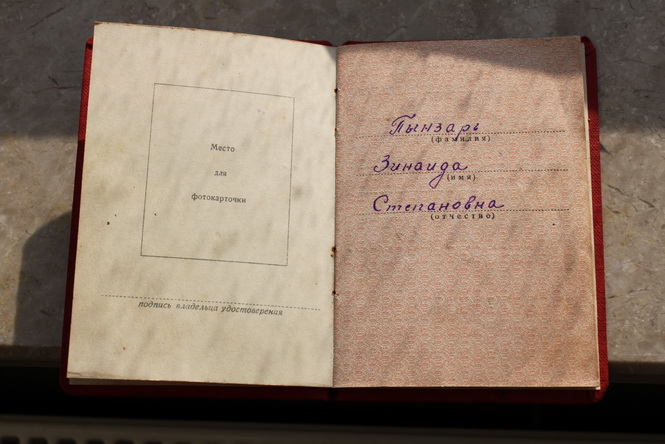 Место
для
фотокарточки
подпись владельца удостоверения
Пынзарь
(фамилия)
Зинаида
(имя)
Степановна
(отчество)